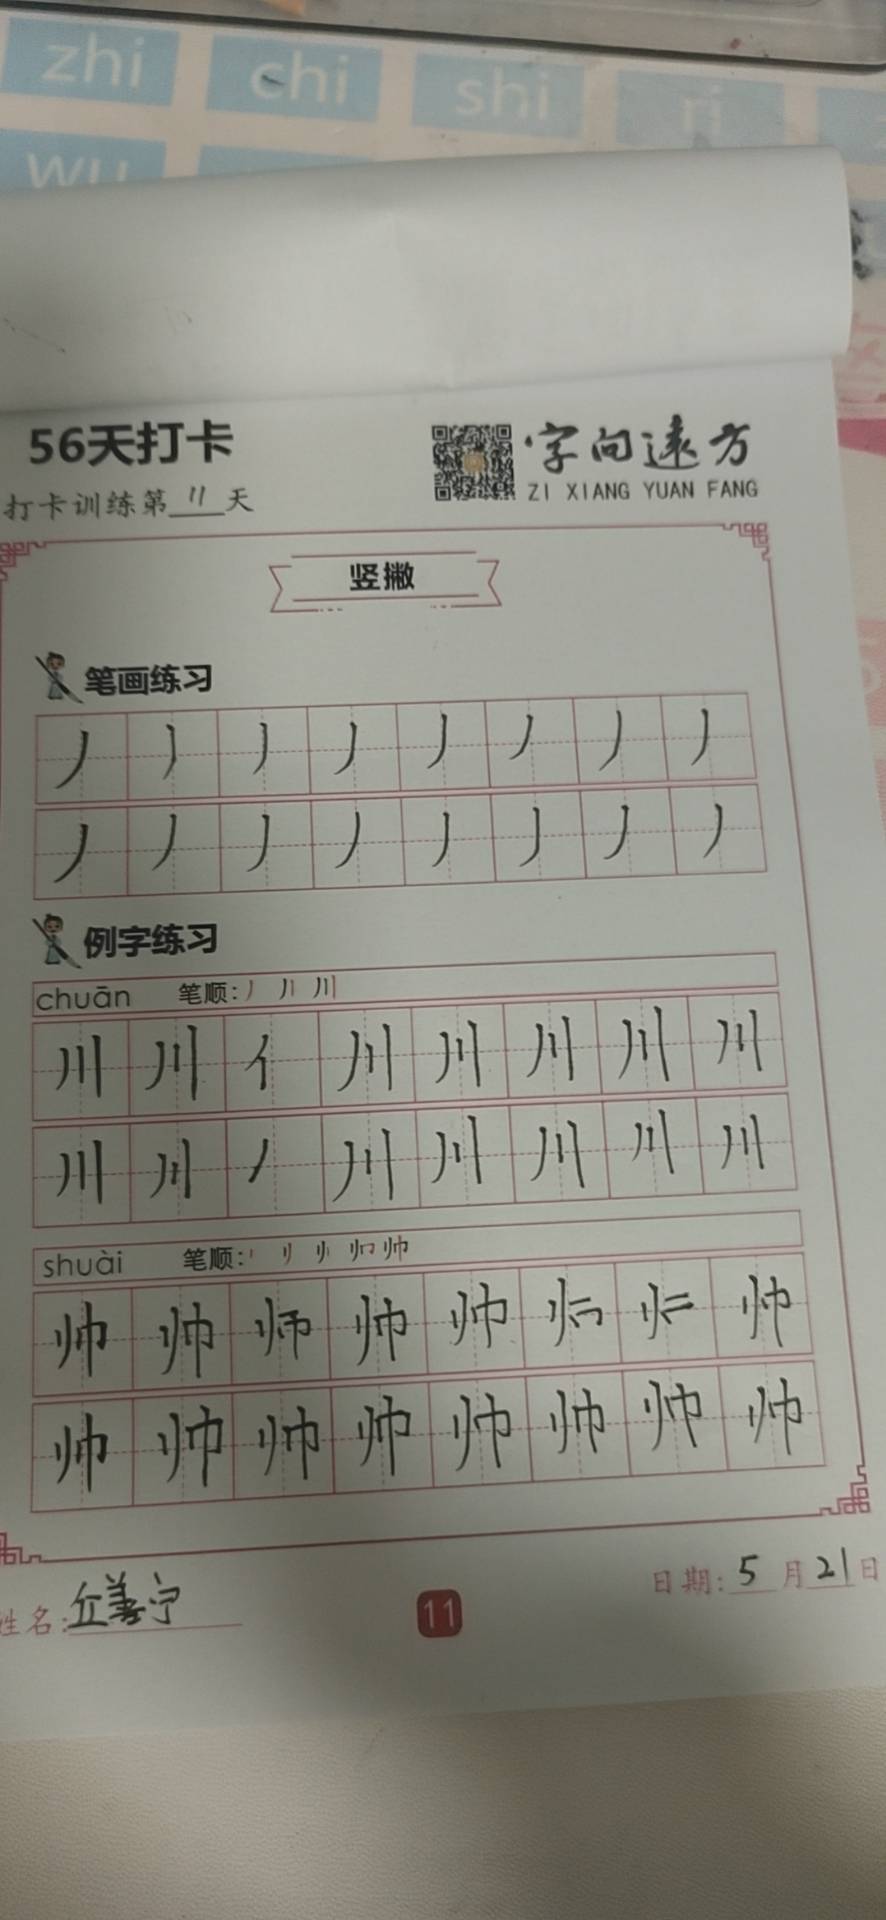 zhi chi shi ri
wu
56天打卡
字向远方
ZI XIANG YUAN FANG
打卡训练第11天
竖撇
笔画练习
丿 丿 丿 丿 丿 丿 丿 丿
丿 丿 丿 丿 丿 丿 丿 丿
例字练习
chuān 笔顺：丿 川
川 川 亻 川 川 川 川 川
川 川 丿 川 川 川 川 川
shuài 笔顺： 帅
帅 帅 师 帅 帅 帅
帅 帅 帅 帅 帅 帅 帅 帅
姓名：丘善宁
11
日期：5月21日